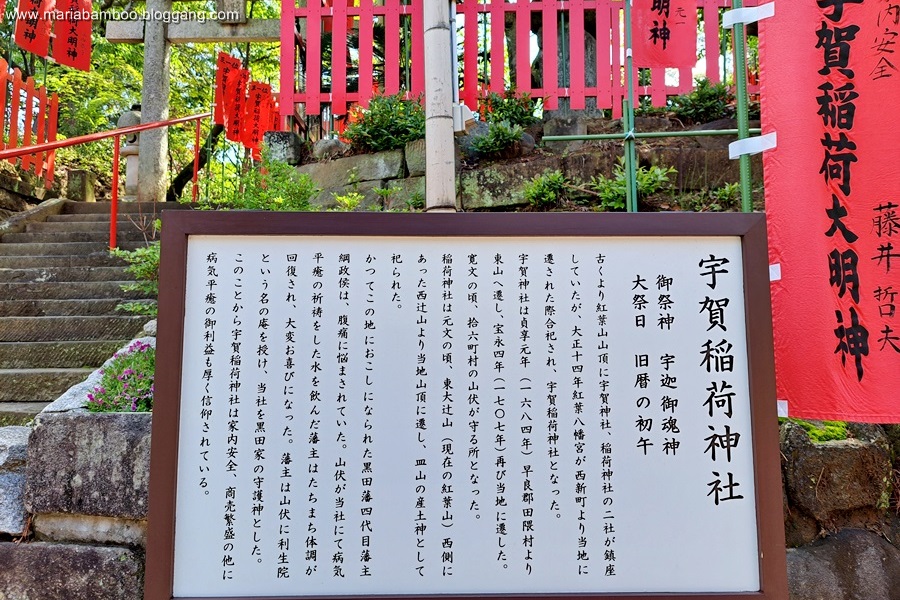 www.mariabamboo.bloggang.com
大明神
明神
内安全
宇賀稲荷大明神
藤井哲夫
宇賀稲荷神社
御祭神　宇迦御魂神
大祭日　旧暦の初午
古くより紅葉山山頂に宇賀神社、稲荷神社の二社が鎮座
していたが、大正十四年紅葉八幡宮が西新町より当地に
遷された際合祀され、宇賀稲荷神社となった。
宇賀神社は貞享元年（一六八四年）早良郡田隈村より
東山へ遷し、宝永四年（一七〇七年）再び当地に遷した。
寛文の頃、拾六町村の山伏が守る所となった。
稲荷神社は元文の頃、東大辻山（現在の紅葉山）西側に
あった西辻山より当地山頂に遷し、皿山の産土神として
祀られた。
かつてこの地におこしになられた黒田藩四代目藩主
綱政侯は、腹痛に悩まされていた。山伏が当社にて病気
平癒の祈祷をした水を飲んだ藩主はたちまち体調が
回復され、大変お喜びになった。藩主は山伏に利生院
という名の庵を授け、当社を黒田家の守護神とした。
このことから宇賀稲荷神社は家内安全、商売繁盛の他に
病気平癒の御利益も厚く信仰されている。